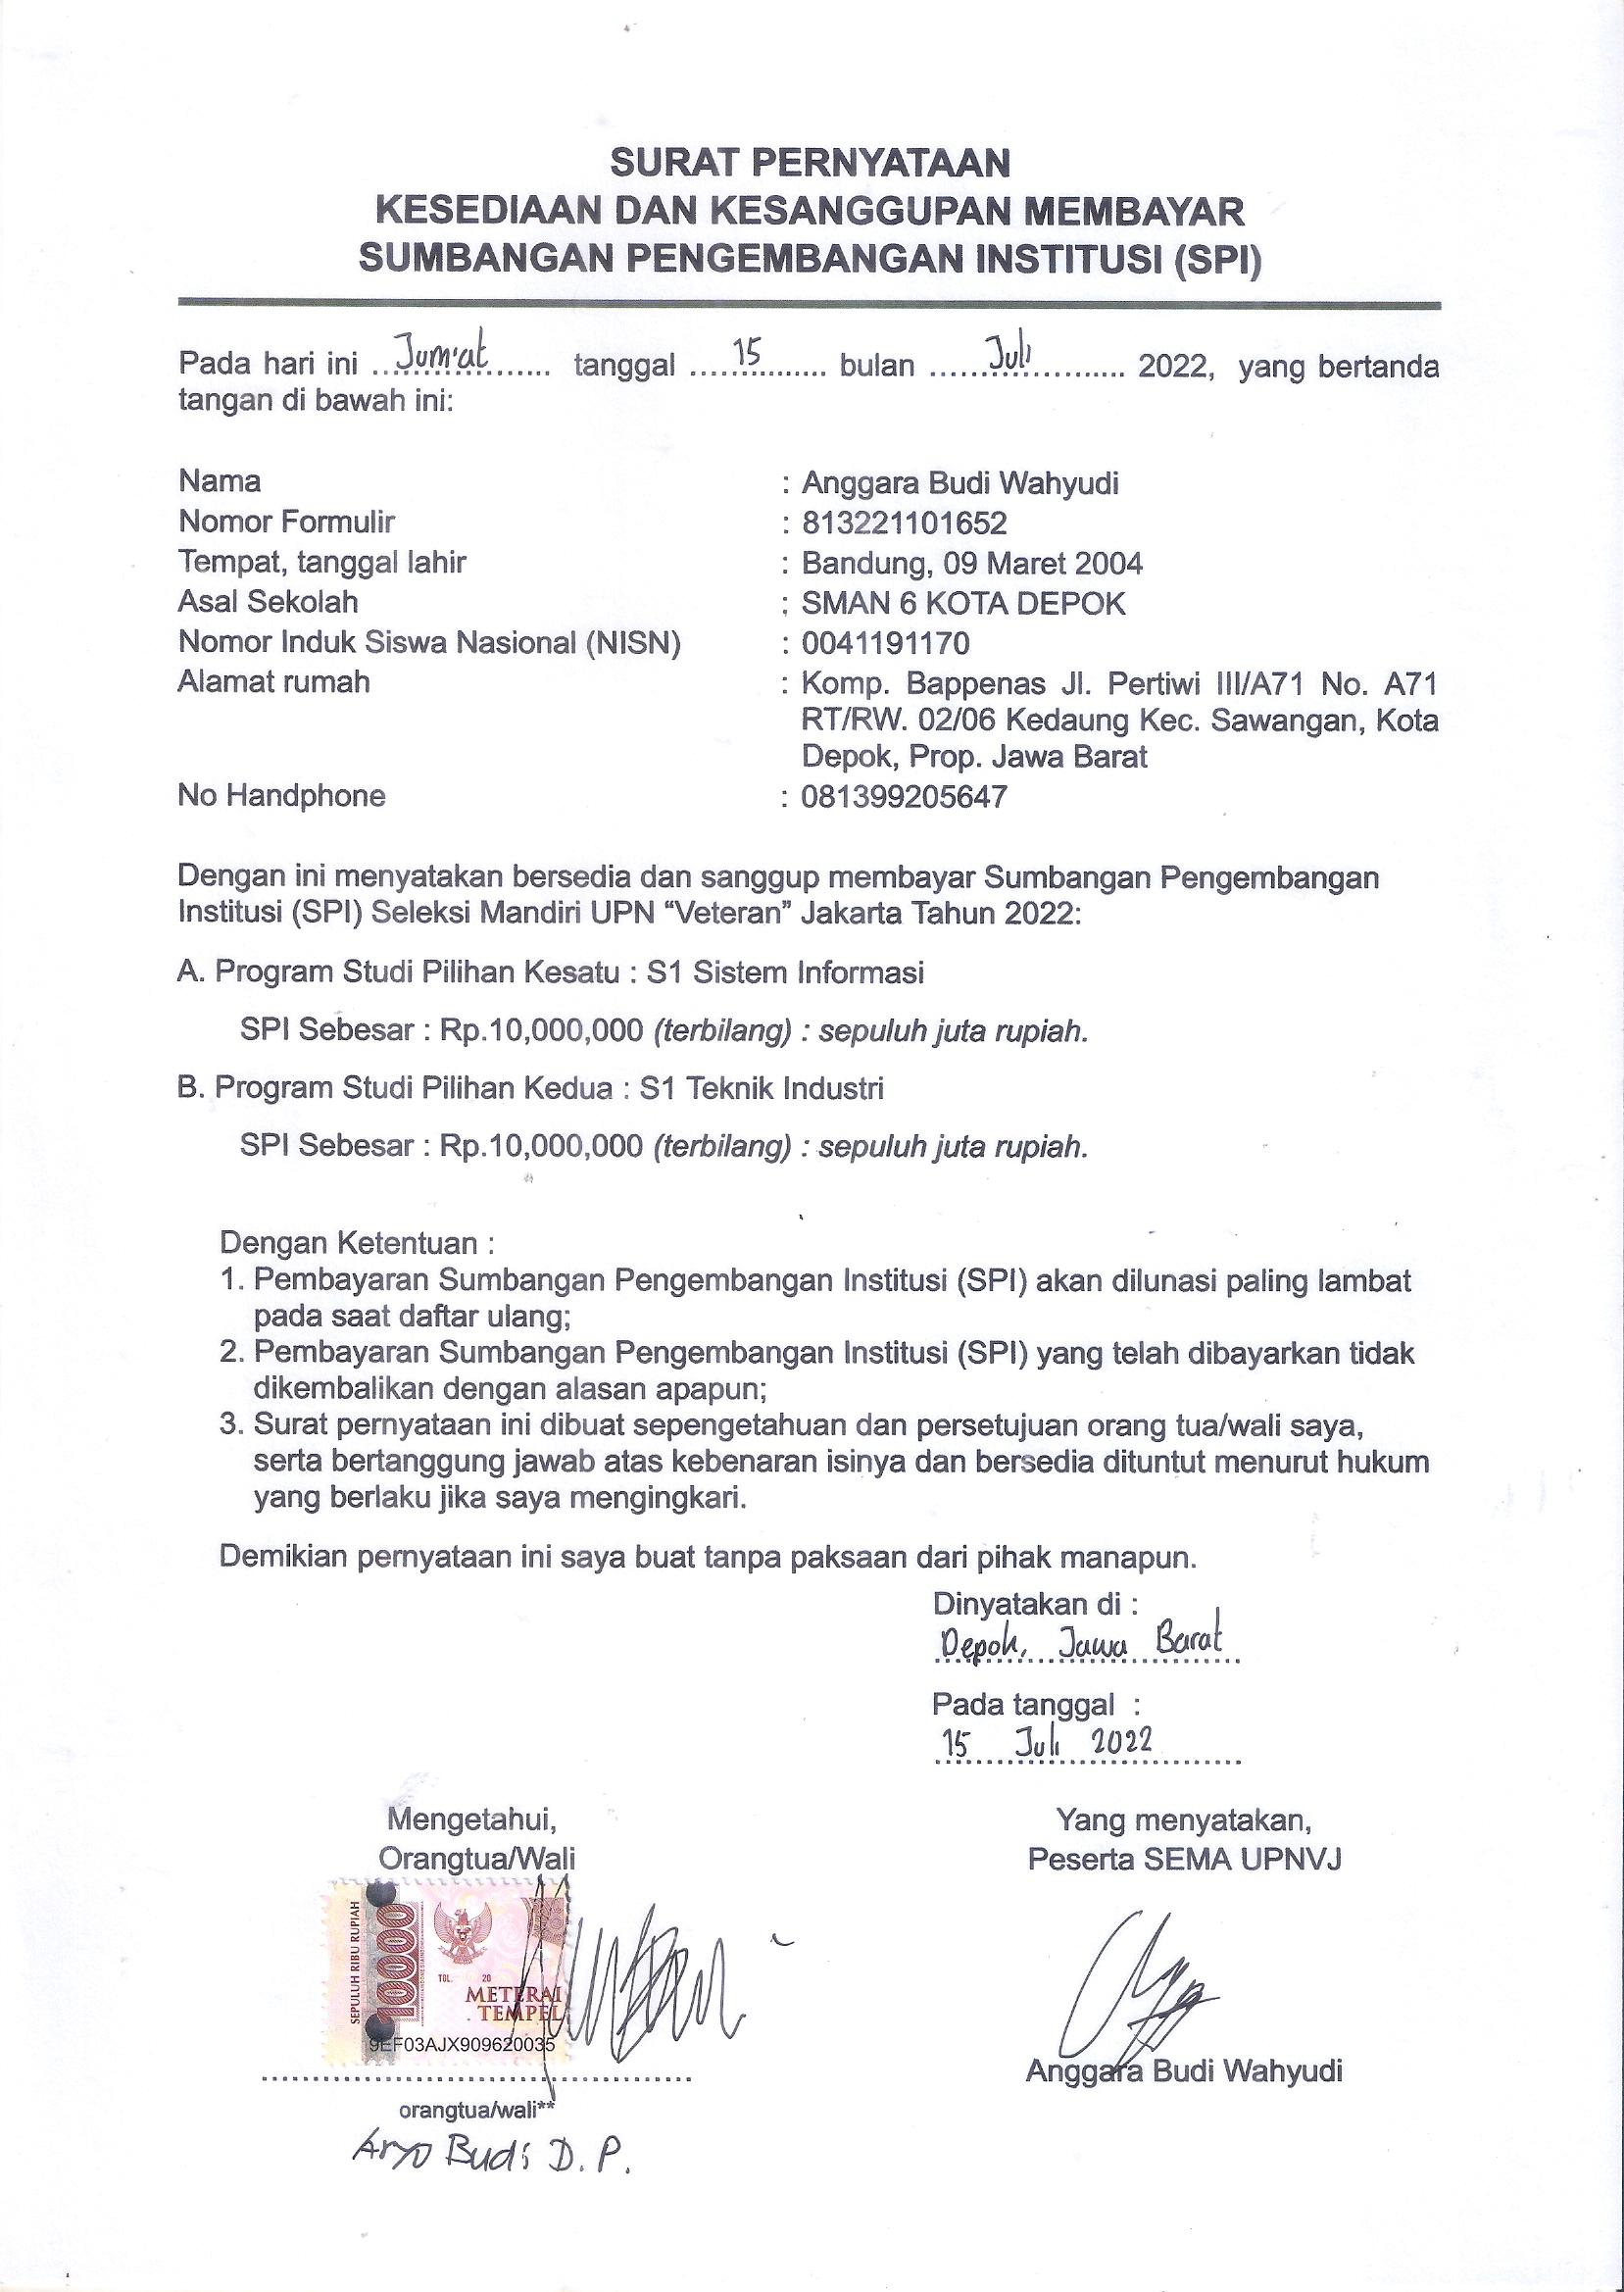 SURAT PERNYATAAN
KESEDIAAN DAN KESANGGUPAN MEMBAYAR
SUMBANGAN PENGEMBANGAN INSTITUSI (SPI)
Pada hari ini ...Jum'at... tanggal ...15... bulan ...Juli... 2022, yang bertanda
tangan di bawah ini:
Nama : Anggara Budi Wahyudi
Nomor Formulir : 813221101652
Tempat, tanggal lahir : Bandung, 09 Maret 2004
Asal Sekolah : SMAN 6 KOTA DEPOK
Nomor Induk Siswa Nasional (NISN) : 0041191170
Alamat rumah : Komp. Bappenas Jl. Pertiwi III/A71 No. A71
RT/RW. 02/06 Kedaung Kec. Sawangan, Kota
Depok, Prop. Jawa Barat
No Handphone : 081399205647
Dengan ini menyatakan bersedia dan sanggup membayar Sumbangan Pengembangan
Institusi (SPI) Seleksi Mandiri UPN “Veteran” Jakarta Tahun 2022:
A. Program Studi Pilihan Kesatu : S1 Sistem Informasi
SPI Sebesar : Rp.10,000,000 (terbilang) : sepuluh juta rupiah.
B. Program Studi Pilihan Kedua : S1 Teknik Industri
SPI Sebesar : Rp.10,000,000 (terbilang) : sepuluh juta rupiah.
Dengan Ketentuan :
1. Pembayaran Sumbangan Pengembangan Institusi (SPI) akan dilunasi paling lambat
pada saat daftar ulang;
2. Pembayaran Sumbangan Pengembangan Institusi (SPI) yang telah dibayarkan tidak
dikembalikan dengan alasan apapun;
3. Surat pernyataan ini dibuat sepengetahuan dan persetujuan orang tua/wali saya,
serta bertanggung jawab atas kebenaran isinya dan bersedia dituntut menurut hukum
yang berlaku jika saya mengingkari.
Demikian pernyataan ini saya buat tanpa paksaan dari pihak manapun.
Dinyatakan di :
Depok, Jawa Barat
Pada tanggal :
15 Juli 2022
Mengetahui,
Orangtua/Wali
SEPULUH RIBU RUPIAH
10000
TGL. 20
METERAI
TEMPEL
9EF03AJX909620035
orangtua/wali**
Aryo Budi D. P.
Yang menyatakan,
Peserta SEMA UPNVJ
Anggara Budi Wahyudi